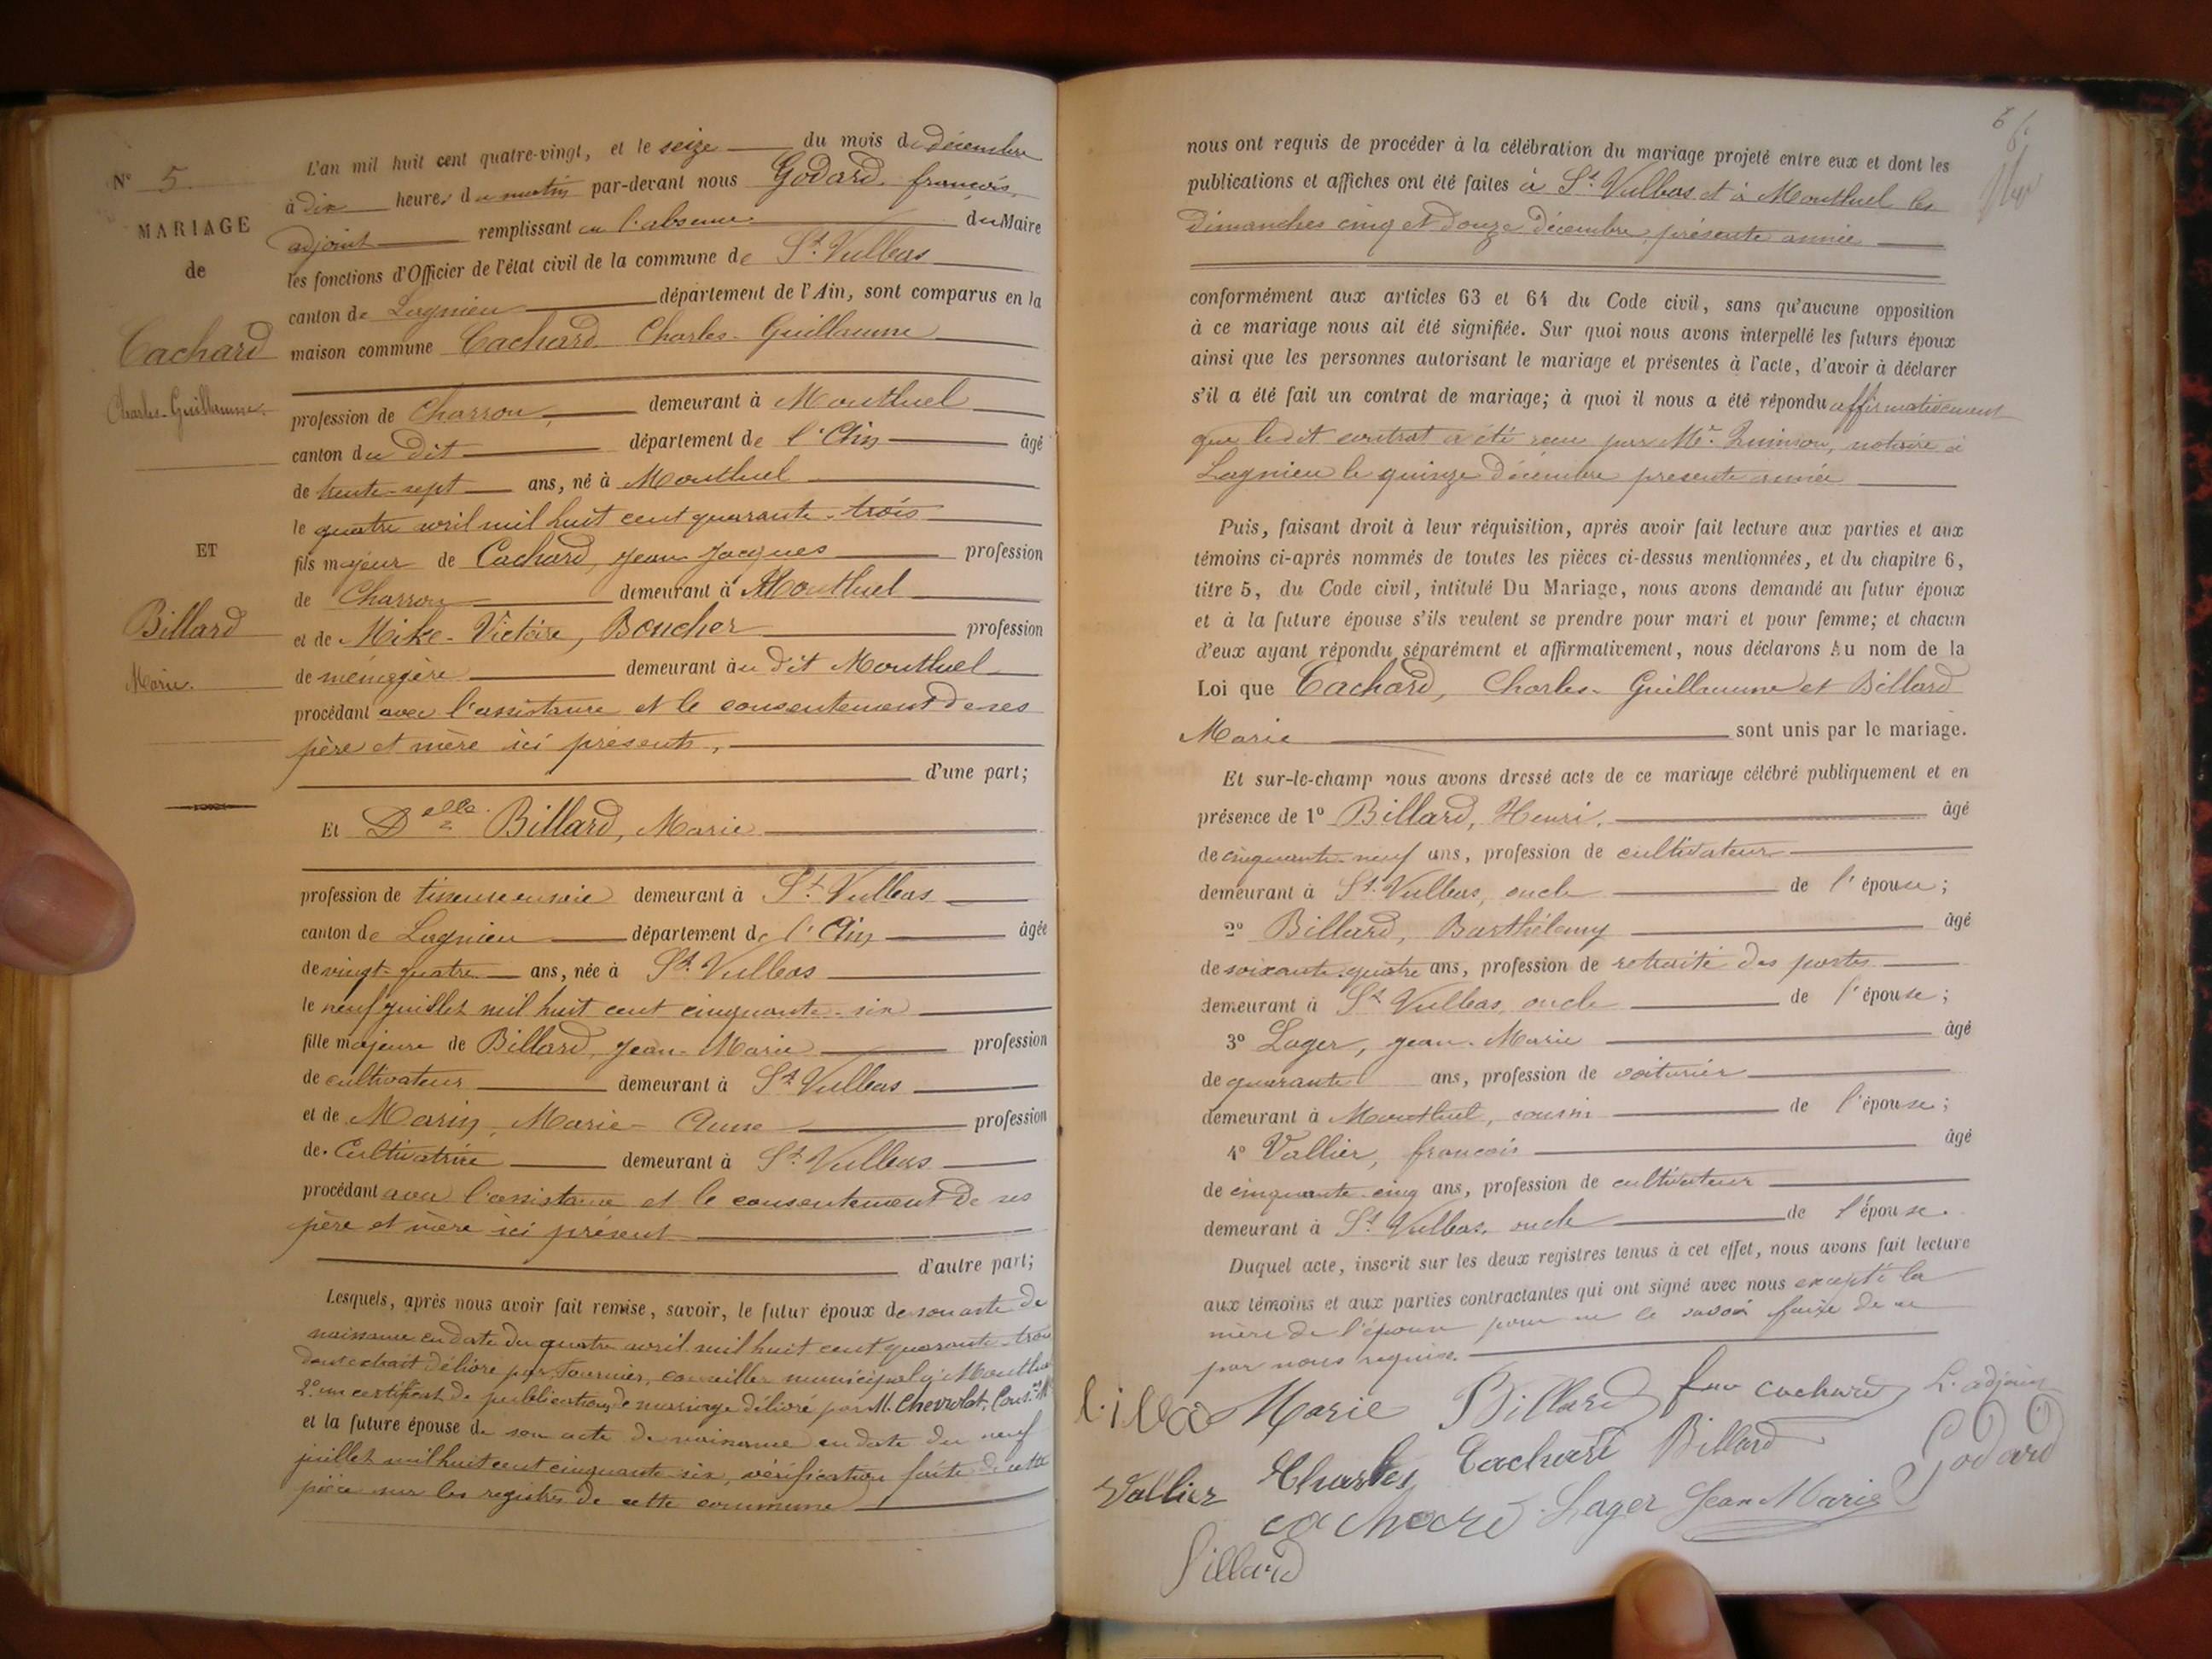 N° 5.
MARIAGE
de
Cachard
Charles-Guillaume.
ET
Billard
Marie.
L'an mil huit cent quatre-vingt, et le seize du mois de décembre
à dix heures du matin par-devant nous Godard, françois
adjoint remplissant en l'absence du Maire
les fonctions d'Officier de l'état civil de la commune de St Vulbas
canton de Lagnieu département de l'Ain, sont comparus en la
maison commune Cachard Charles-Guillaume
profession de Charron, demeurant à Montluel
canton du dit département de l'Ain âgé
de trente-sept ans, né à Montluel
le quatre avril mil huit cent quarante-trois
fils majeur de Cachard, jean jacques profession
de Charron demeurant à Montluel
et de Mike-Victoire, Boucher profession
de ménagère demeurant au dit Montluel
procédant avec l'assistance et le consentement de ses
père et mère ici présents,
d'une part;
Et Delle Billard, Marie
profession de tisseuse en soie demeurant à St Vulbas
canton de Lagnieu département de l'Ain âgée
de vingt-quatre ans, née à St Vulbas
le neuf juillet mil huit cent cinquante-six
fille majeure de Billard, jean-Marie profession
de cultivateur demeurant à St Vulbas
et de Marin, Marie-Anne profession
de Cultivatrice demeurant à St Vulbas
procédant avec l'assistance et le consentement de ses
père et mère ici présent
d'autre part;
Lesquels, après nous avoir fait remise, savoir, le futur époux de son acte de
naissance en date du quatre avril mil huit cent quarante-trois
dont extrait délivré par Fournier, conseiller municipal à Montluel
2° un certificat de publication de mariage délivré par M. Chevrolat, Cons.
et la future épouse de son acte de naissance en date du neuf
juillet mil huit cent cinquante-six, vérification faite de cette
pièce sur les registres de cette commune
6
nous ont requis de procéder à la célébration du mariage projeté entre eux et dont les
publications et affiches ont été faites à St Vulbas et à Montluel les
Dimanches cinq et douze Décembre présente année
conformément aux articles 63 et 64 du Code civil, sans qu'aucune opposition
à ce mariage nous ait été signifiée. Sur quoi nous avons interpellé les futurs époux
ainsi que les personnes autorisant le mariage et présentes à l'acte, d'avoir à déclarer
s'il a été fait un contrat de mariage; à quoi il nous a été répondu affirmativement
que ledit contrat a été reçu par Me Quinson, notaire à
Lagnieu le quinze Décembre présente année
Puis, faisant droit à leur réquisition, après avoir fait lecture aux parties et aux
témoins ci-après nommés de toutes les pièces ci-dessus mentionnées, et du chapitre 6,
titre 5, du Code civil, intitulé Du Mariage, nous avons demandé au futur époux
et à la future épouse s'ils veulent se prendre pour mari et pour femme; et chacun
d'eux ayant répondu séparément et affirmativement, nous déclarons Au nom de la
Loi que Cachard, Charles-Guillaume et Billard
Marie sont unis par le mariage.
Et sur-le-champ nous avons dressé acte de ce mariage célébré publiquement et en
présence de 1° Billard, Henri, âgé
de cinquante-neuf ans, profession de cultivateur
demeurant à St. Vulbas, oncle de l'épouse;
2° Billard, Barthélemy âgé
de soixante-quatre ans, profession de retraité des postes
demeurant à St Vulbas, oncle de l'épouse;
3° Lager, jean-Marie âgé
de quarante ans, profession de voiturier
demeurant à Montluel, cousin de l'épouse;
4° Vallier, francois âgé
de cinquante-cinq ans, profession de cultivateur
demeurant à St Vulbas, oncle de l'épouse.
Duquel acte, inscrit sur les deux registres tenus à cet effet, nous avons fait lecture
aux témoins et aux parties contractantes qui ont signé avec nous excepté la
mère de l'époux pour ne le savoir faire de ce
par nous requise.
Marie Billard cachard L. adjoint
Vallier Charles Cachard Billard Godard
cachard Lager Jean Marie
Billard